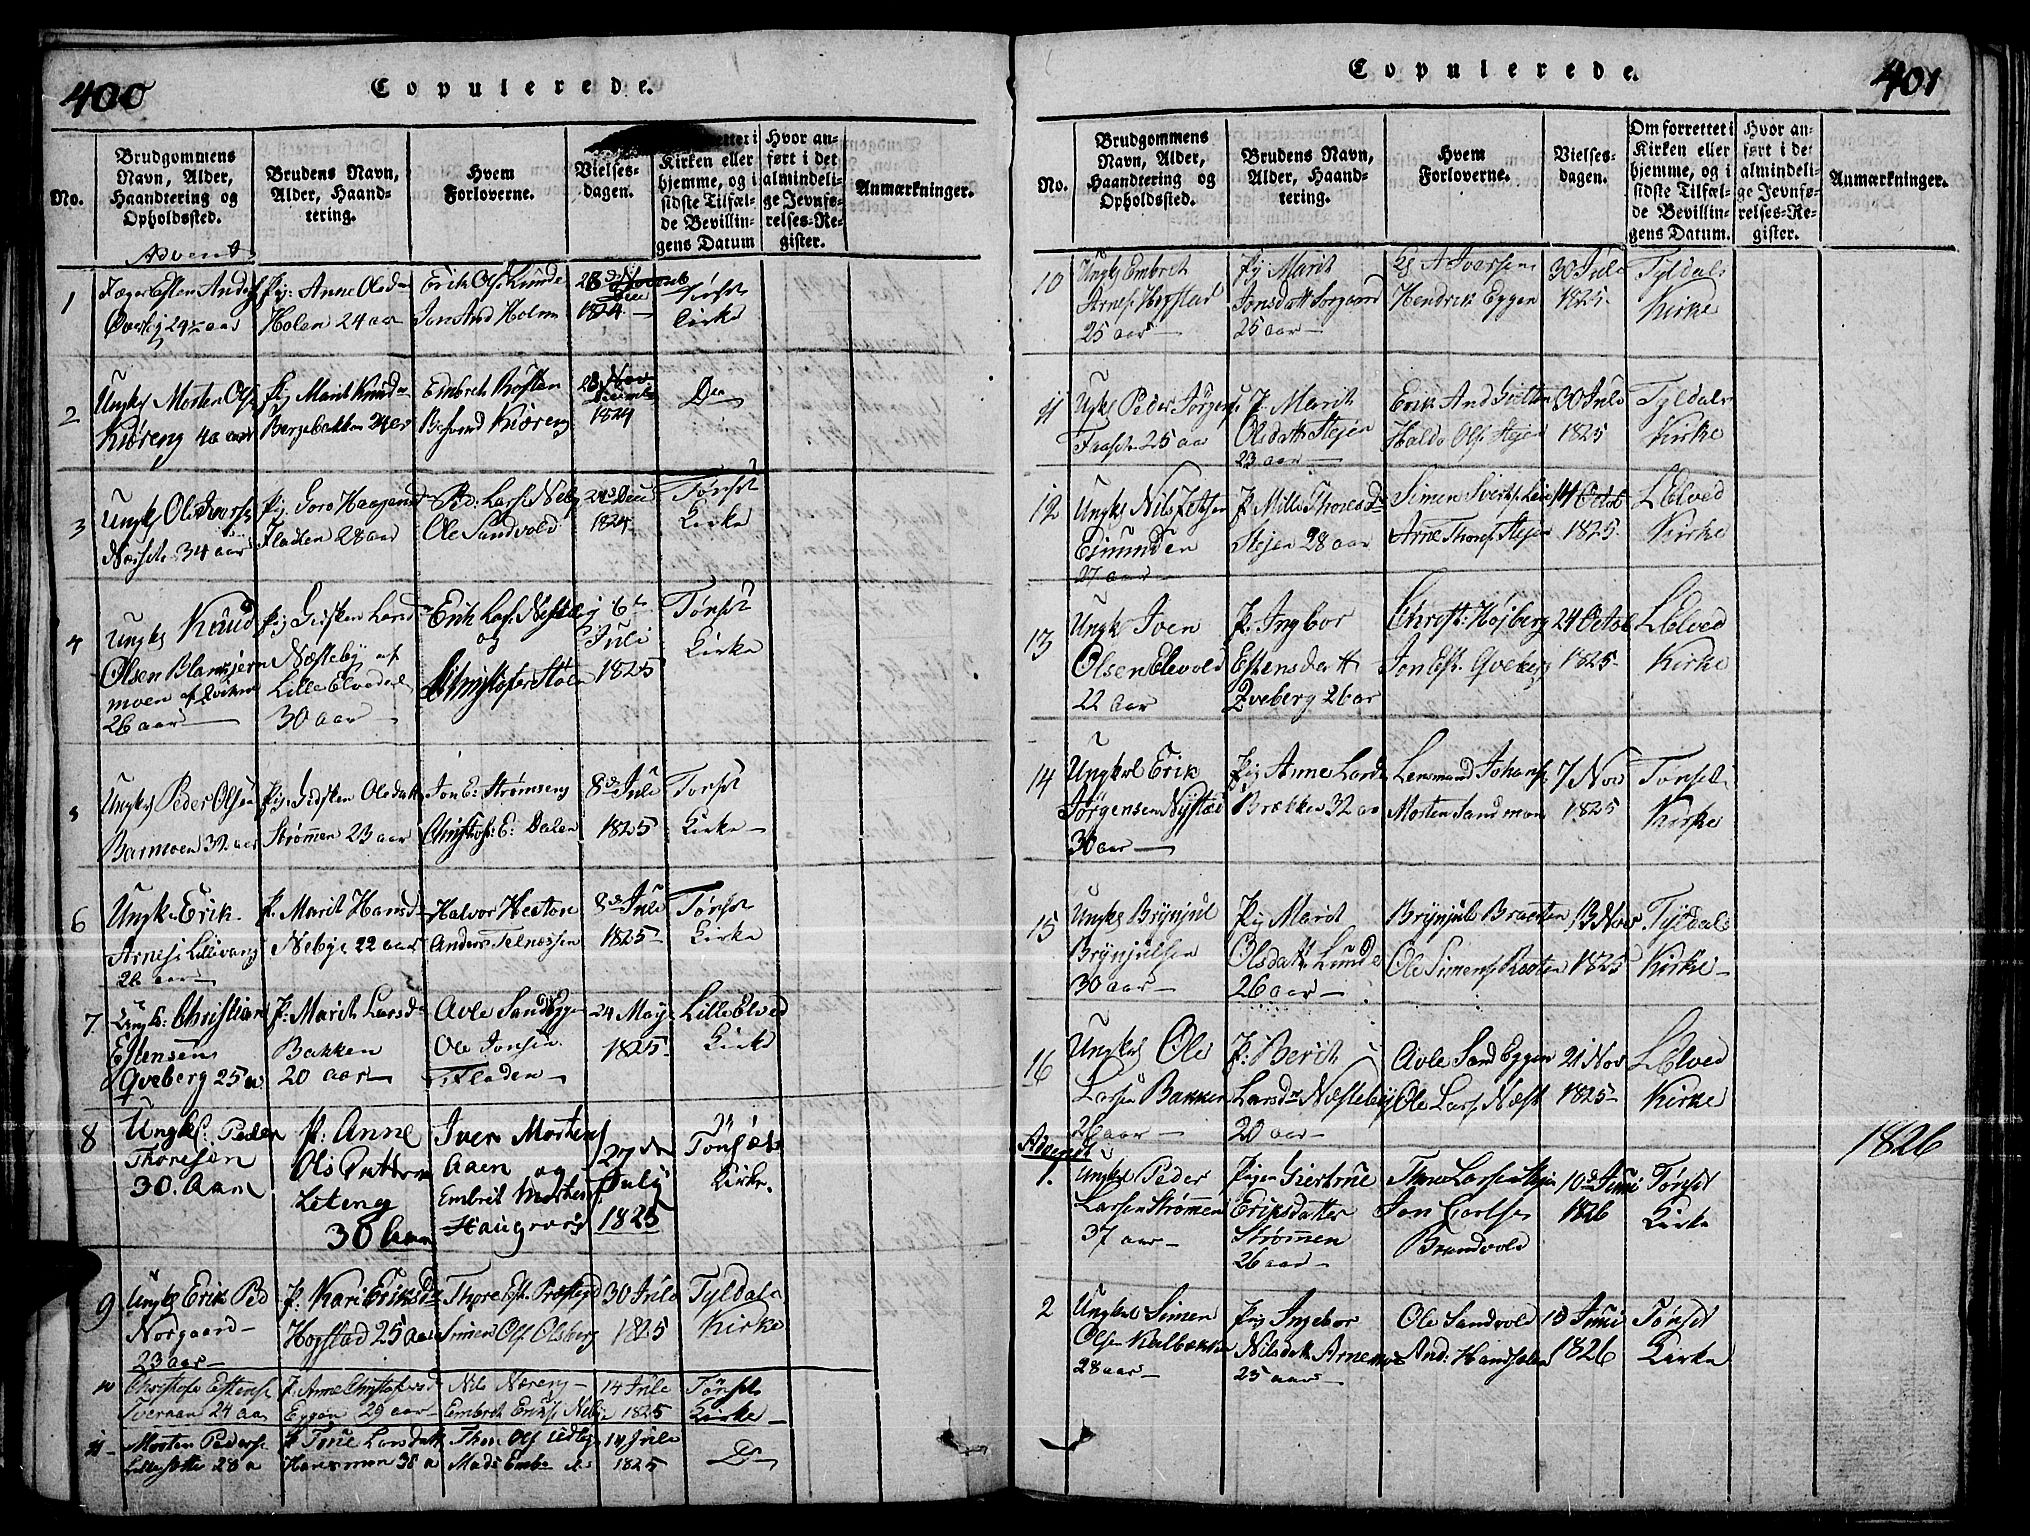 400
Copulerede.
No.
Brudgommens
Navn, Alder,
Haandtering og
Opholdssted.
Brudens Navn,
Alder, Haand-
tering.
Hvem
Forloverne.
Vielses-
dagen.
rettet i
Kirken eller
hjemme, og i
sidste Tilfæl-
de Bevillin-
gens Datum
Hvor an-
ført i det
almindeli-
ge Jevnfø-
relses-Re-
gister.
Anmærkninger.
Advent
1
Esten
24 aar
Pig: Anne Olsd
Holen 24 aar
Erik Ols Lunde
Jon And Holm
1824
Tørset
Kirke
2
Ungk Morten Ols
Kiøreng 40 aar
Pig Marit Knud
Bergebakken 24 ar
Embret
Kiøreng
1824
Do
3
Ungk Ole Ivers
34 aar
Pig: Goro Haagensd
Fladen 28 aar
Ped. Lars. Neby
Ole Sandvold
24 Dec
1824
Tørset
Kirke
4
Ungk Knud
Olsen
moen af
26 aar
Pig Gidsken Larsd
Næsteby af
Lille Elvedal
30 aar
Erik Lars. Næsteby
og
Christofer
6te
Juli
1825
Tønset
Kirke
5
Ungk Peder Olsen
Barmoen 32 aar
Pig: Gidsken Olsdat
Strømmen 23 aar
Jon E. Strømseng
Christof: E: Dalen
8de Juli
1825
Tønset
Kirke
6
Ungk Erik
Arnes Lillevang
26 aar
P. Marit Hansd
Nebye 22 aar
Halvor
Anders Telnessen
8de Juli
1825
Tønset
Kirke
7
Ungk: Christian
Estensen
Qveberg 25 a
P. Marit Larsd
Bakken
20 aar
Avle Sandeggen
Ole Jonsen
Fladen
24 May
1825
Lille Elved
Kirke
8
Ungk: Peder
Thoresen
30. Aar
P. Anne
Ols Datter
Liteng
30 Aar
Iver Mortens
Aaen og
Embret Morten
Haugvold
27de
July
1825
Tønsæt
Kirke.
9
Ungk Erik Ped
Norgaard
23 aar
P. Kari Eriksd
Hogstad 25 aar
Thore Est. Præstegd
Simen Ols Olsberg
30 Juli
1825
Tyldals
Kirke
10
Christofer Estens
Tveraan 24 aar
P. Anne Christofersd
Eggen 29 aar
Nils Næreng
Embret Eriks. Neby
14 Juli
1825
Tønset
Kirke
11
Morten Peders
28 a
P. Tine Larsdatt
38 a
Thor Ols
Mads Embr
14 Juli
1825
Do
401
Copulerede.
No.
Brudgommens
Navn, Alder,
Haandtering og
Opholdssted.
Brudens Navn,
Alder, Haand-
tering.
Hvem
Forloverne.
Vielses-
dagen.
Om forrettet i
Kirken eller
hjemme, og i
sidste Tilfæl-
de Bevillin-
gens Datum.
Hvor an-
ført i det
almindeli-
ge Jevnfø-
relses-Re-
gister.
Anmærkninger.
10
Ungk Embret
Arnes. Hogstad
25 aar
Pig Marit
Jonsdatt Norgaard
25 aar
Iversen
Hendrik Eggen
30 Juli
1825
Tyldals
Kirke
11
Ungk Peder Jørgens
25 aa
P. Marit
Olsdatt Stejen
23 aar
Erik And
Haldo Ols Stejen
30 Juli
1825
Tyldals
Kirke
12
Ungk Nils
Esmunden
27 aar
P. Mille Thoresd
Stejen 28 aar
Simen
Arne Thores Stejen
14 Octob
1825
LElved
Kirke
13
Ungk Iven
Olsen Elevold
22 Aar
P. Ingbor
Estensdatt
Qveberg 26 ar
Christ: Højberg
Jon Est. Qveberg
24 Octob
1825
LElved
Kirke
14
Ungkl Erik
Jørgensen Nystad
30 aar
Pig Anne Larsd
Brækken 32 aa
Lensmand Johans
Morten Sandmoen
7 Nov
1825
Tønset
Kirke
15
Ungk Brynjul
Brynjulsen
30 aar
Pig Marit
Olsdatt Lunde
26 aar
Brynjul
Ole Simens
13 Nov
1825
Tyldals
Kirke
16
Ungk Ole
Larsen Bakken
26 aar
P. Berit
Larsdr Næsteby
20 aar
Avle Sand Eggen
Ole Lars. Næst
21 Nov
1825
LElved
Kirke
Advent
1826
1.
Ungk Peder
Larsen Strømmen
37 aar
Pigen Giertrue
Eriksdatter
Strømmen
26 aar
Thore Larsen Stejen
Jon Carlsen
Brandvold
10de Juni
1826
Tønset
Kirke
2
Ungkl Simen
Olsen Kalbækken
28 aar
Pig Ingebor
Nilsdatt Arnemoe
25 aar
Ole Sandvold
And:
10 Juni
1826
Tønset
Kirke